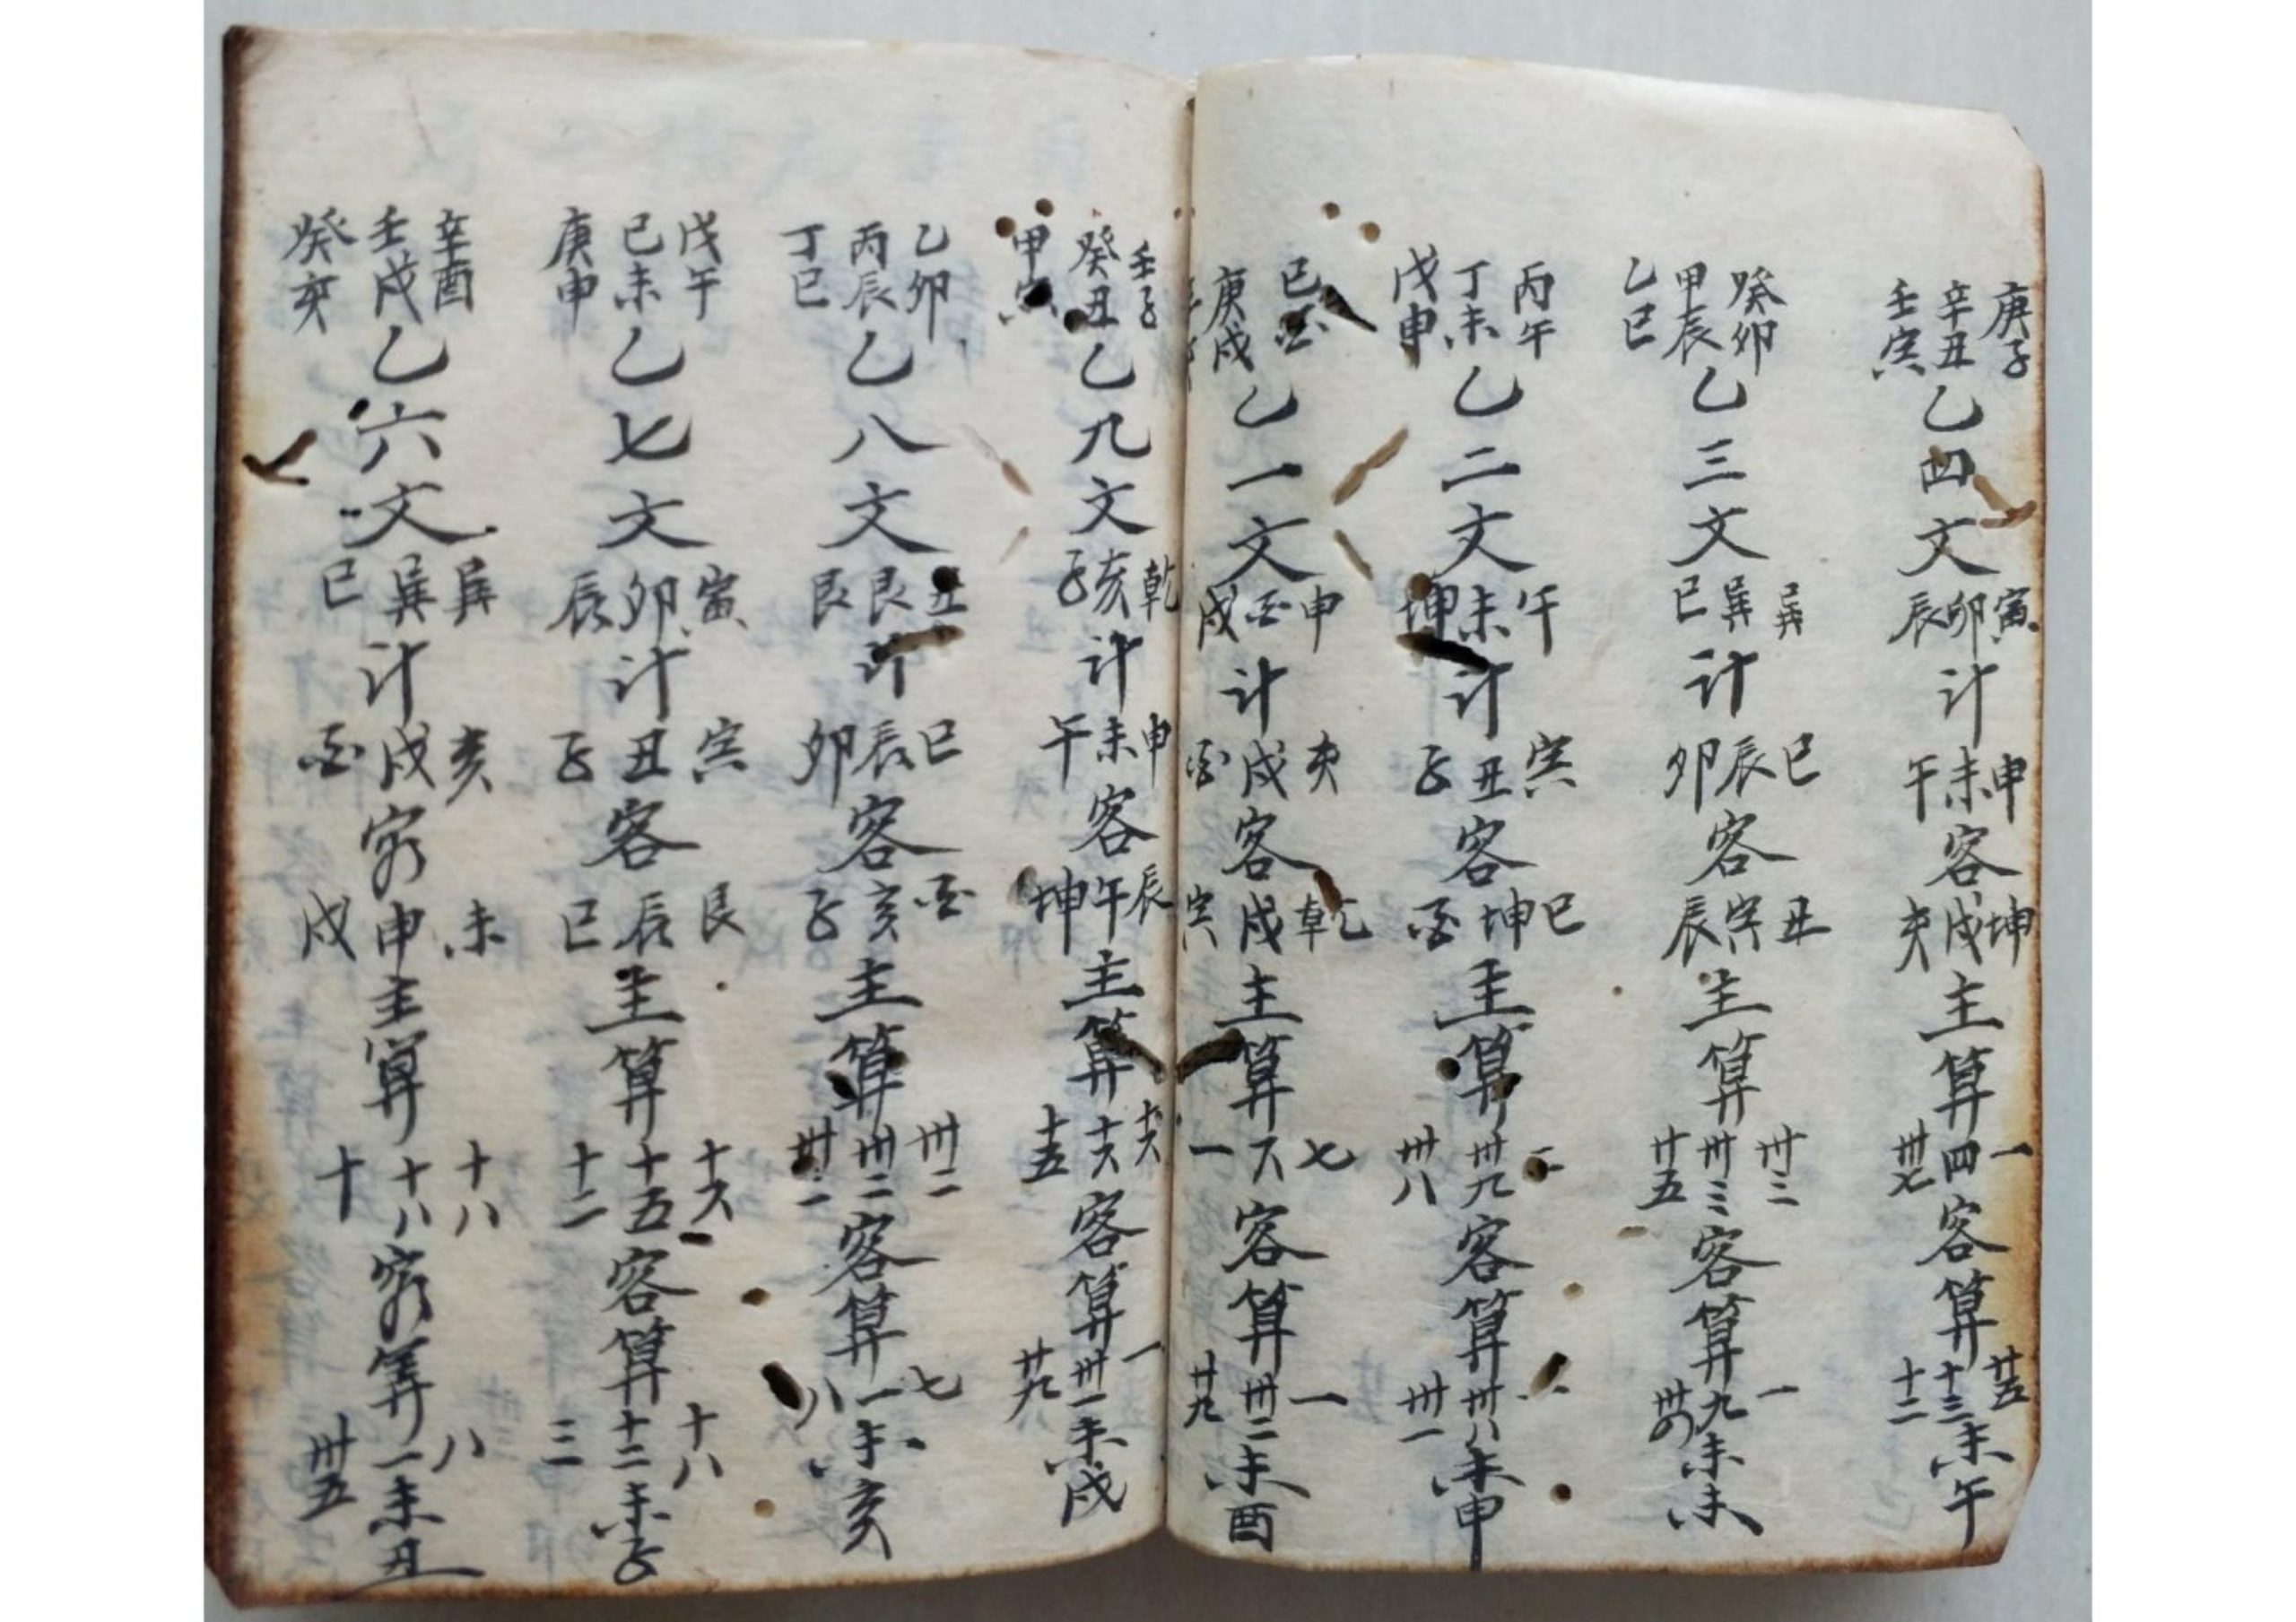 庚子 辛丑 壬寅 乙四文 寅 卯 辰 计 申 未 午 客 坤 戌 亥 主算 一 四 卅七 客算 廿五 十三 十二 未午
癸卯 甲辰 乙巳 乙三文 巽 巽 巳 计 巳 辰 卯 客 丑 寅 辰 主算 卅三 卅三 廿五 客算 一 九 卅四 未未
丙午 丁未 戊申 乙二文 午 未 坤 计 寅 丑 子 客 巳 坤 酉 主算 卅九 卅八 客算 卅八 卅一 未申
己酉 庚戌 乙一文 申 酉 戌 计 亥 戌 酉 客 乾 戌 寅 主算 七 六 一 客算 一 卅二 廿九 未酉
壬子 癸丑 甲寅 乙九文 乾 亥 子 计 申 未 午 客 辰 午 坤 主算 十六 十六 十五 客算 一 卅一 廿九 未戌
乙卯 丙辰 丁巳 乙八文 丑 艮 艮 计 巳 辰 卯 客 酉 亥 子 主算 卅二 卅二 卅一 客算 七 一 八 未亥
戊午 己未 庚申 乙七文 寅 卯 辰 计 寅 丑 子 客 艮 辰 巳 主算 十六 十五 十二 客算 十八 十二 三 未子
辛酉 壬戌 癸亥 乙六文 巽 巽 巳 计 亥 戌 酉 客 未 申 戌 主算 十八 十八 十 客算 八 一 卅五 未丑